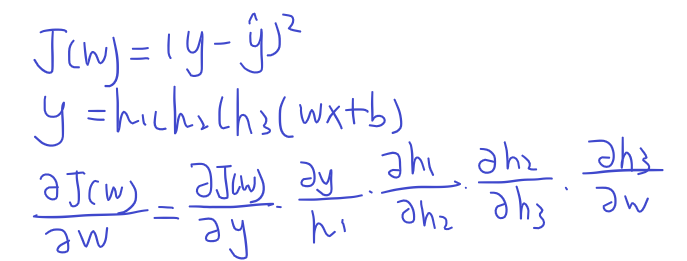 J(w) = (y - ŷ)²
y = h₁(h₂(h₃(wx+b)
∂J(w)/∂w = ∂J(w)/∂y · ∂y/h₁ · ∂h₁/∂h₂ · ∂h₂/∂h₃ · ∂h₃/∂w